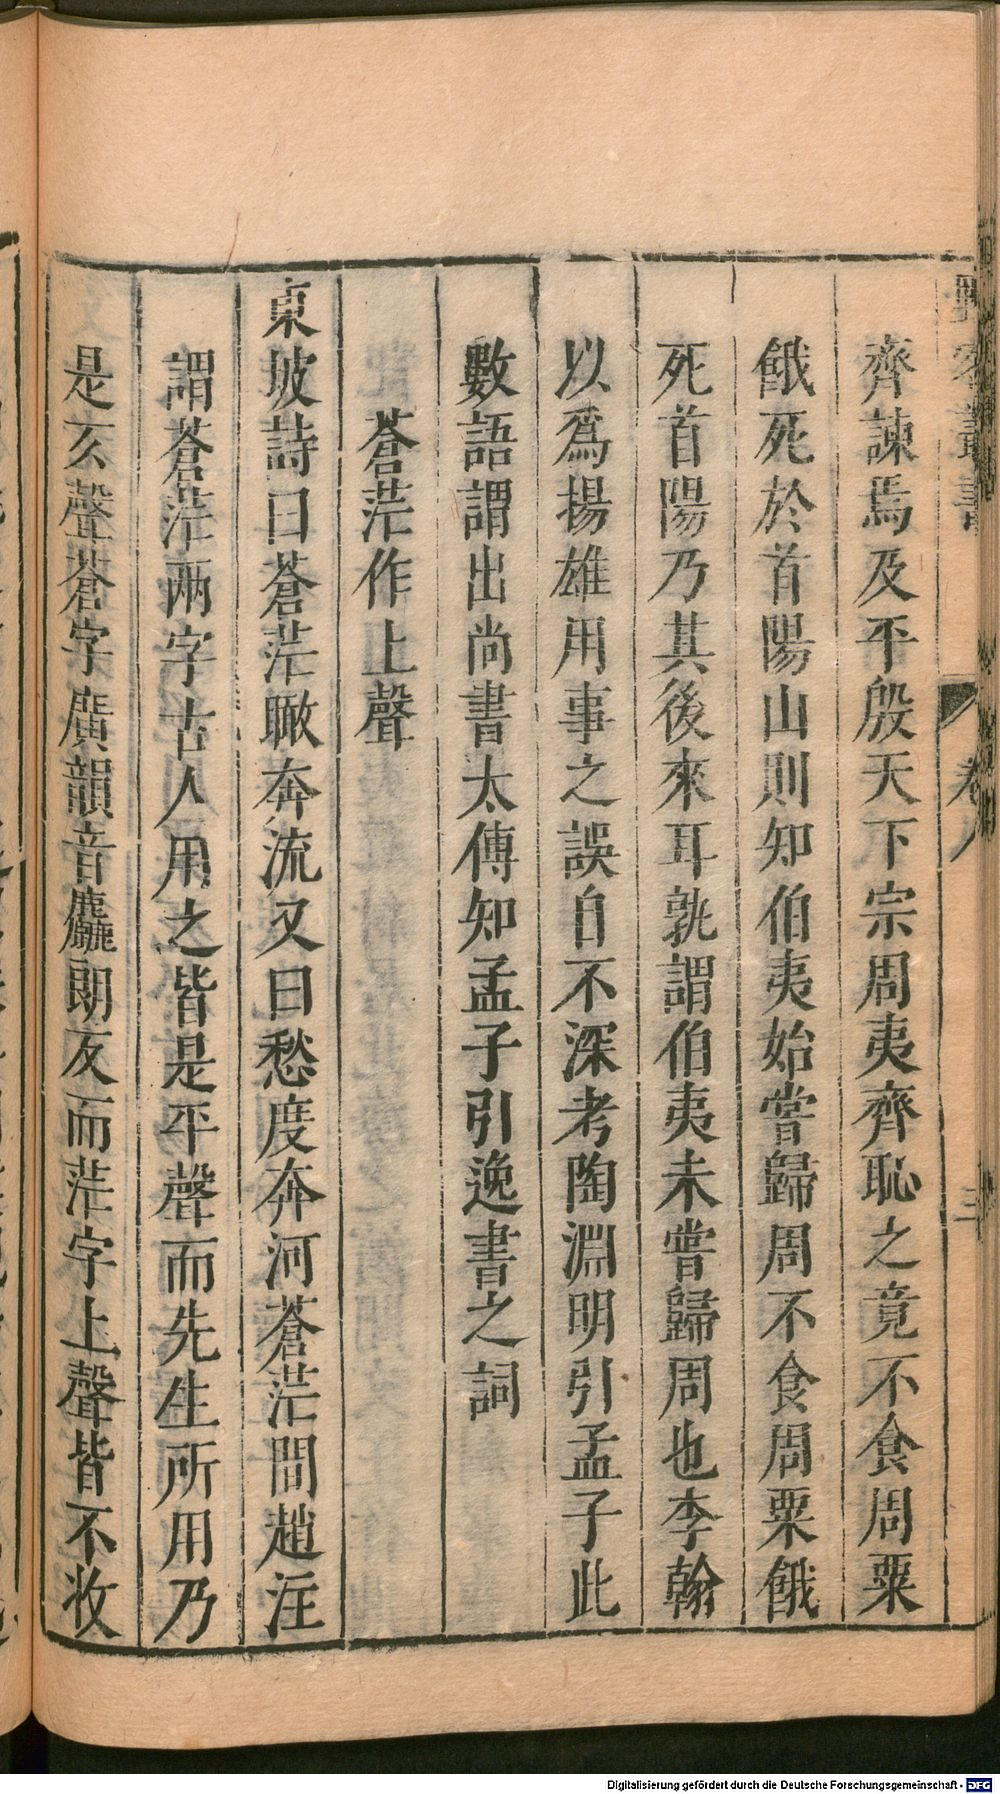 野客叢書
卷八
三
齊諫焉及平殷天下宗周夷齊恥之竟不食周粟
餓死於首陽山則知伯夷始嘗歸周不食周粟餓
死首陽乃其後來耳孰謂伯夷未嘗歸周也李翰
以爲揚雄用事之誤自不深考陶淵明引孟子此
數語謂出尚書太傳知孟子引逸書之詞
蒼茫作上聲
東坡詩曰蒼茫瞰奔流又曰愁度奔河蒼茫間趙注
謂蒼茫兩字古人用之皆是平聲而先生所用乃
是亥聲蒼字廣韻音麤朗反而茫字上聲皆不收
Digitalisierung gefördert durch die Deutsche Forschungsgemeinschaft - DFG